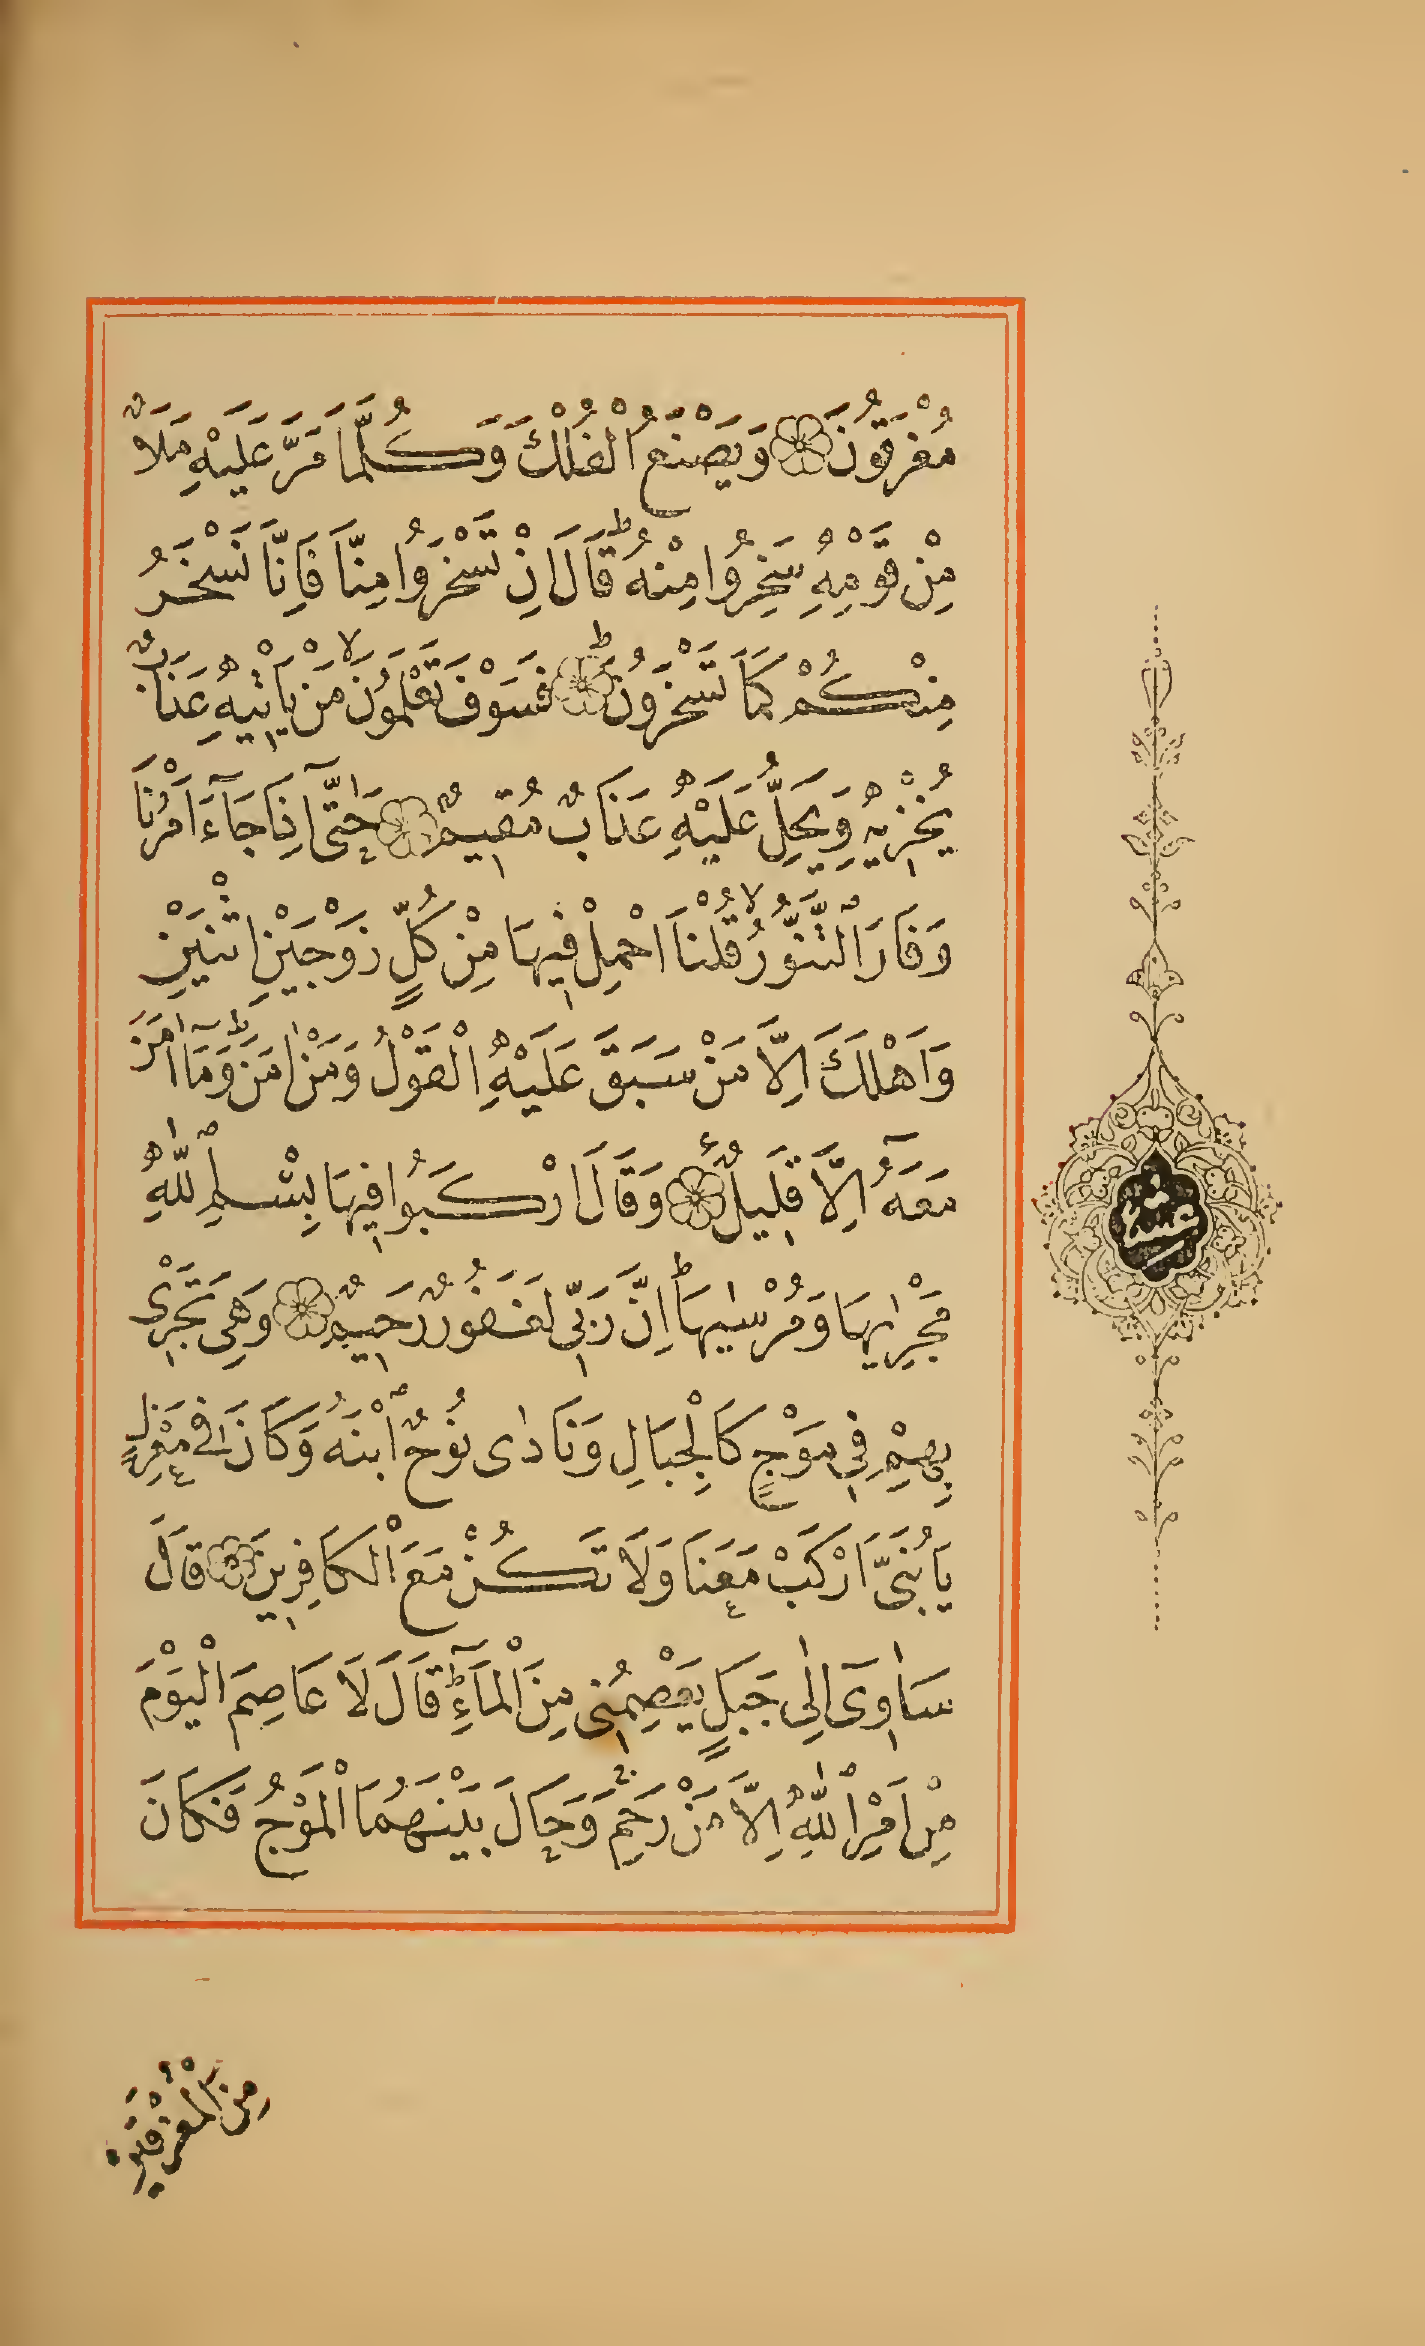 مُغْرَقُونَ وَيَصْنَعُ الْفُلْكَ وَكُلَّمَا مَرَّ عَلَيْهِ مَلَاٌ
مِنْ قَوْمِهِ سَخِرُوا مِنْهُ ۜ قَالَ اِنْ تَسْخَرُوا مِنَّا فَاِنَّا نَسْخَرُ
مِنْكُمْ كَمَا تَسْخَرُونَ فَسَوْفَ تَعْلَمُونَ مَنْ يَاْتِيهِ عَذَابٌ
يُخْزِيهِ وَيَحِلُّ عَلَيْهِ عَذَابٌ مُقِيمٌ حَتّٰٓى اِذَا جَآءَ اَمْرُنَا
وَفَارَ التَّنُّورُ قُلْنَا احْمِلْ فِيهَا مِنْ كُلٍّ زَوْجَيْنِ اثْنَيْنِ
وَاَهْلَكَ اِلَّا مَنْ سَبَقَ عَلَيْهِ الْقَوْلُ وَمَنْ اٰمَنَ وَمَٓا اٰمَنَ
مَعَهُٓ اِلَّا قَلِيلٌ وَقَالَ ارْكَبُوا فِيهَا بِسْمِ اللّٰهِ
مَجْرٰۭيهَا وَمُرْسٰيهَا اِنَّ رَبِّى لَغَفُورٌ رَحِيمٌ وَهِىَ تَجْرِى
بِهِمْ فِى مَوْجٍ كَالْجِبَالِ وَنَادٰى نُوحٌ ابْنَهُ وَكَانَ فِى مَعْزِلٍ
يَا بُنَىَّ ارْكَبْ مَعَنَا وَلَا تَكُنْ مَعَ الْكَافِرِينَ قَالَ
سَاٰوِىٓ اِلٰى جَبَلٍ يَعْصِمُنِى مِنَ الْمَآءِ قَالَ لَا عَاصِمَ الْيَوْمَ
مِنْ اَمْرِ اللّٰهِ اِلَّا مَنْ رَحِمَ وَحَالَ بَيْنَهُمَا الْمَوْجُ فَكَانَ
مِنَ الْمُغْرَقِينَ